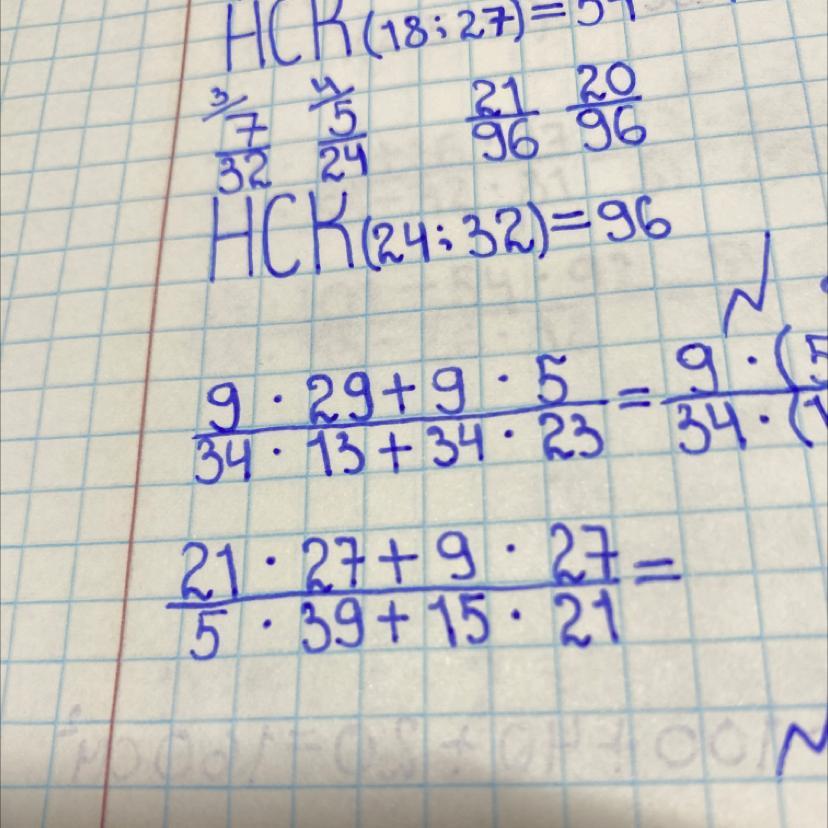 НСК(18;27)=54
3/ 7/32 4/ 5/24 21/96 20/96
НСК(24;32)=96
N
(9·29+9·5)/(34·13+34·23)=9·(5/34·(1
(21·27+9·27)/(5·39+15·21)=
N